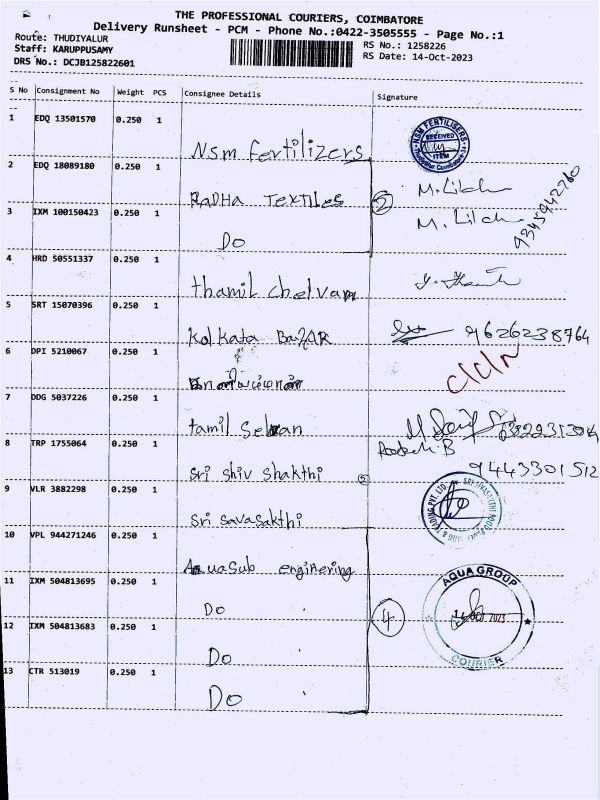 THE PROFESSIONAL COURIERS, COIMBATORE
Delivery Runsheet - PCM - Phone No.:0422-3505555 - Page No.:1
Route: THUDIYALUR
Staff: KARUPPUSAMY
DRS No.: DCJB125822601
RS No.: 1258226
RS Date: 14-Oct-2023
S No Consignment No Weight PCS Consignee Details Signature
1 EDQ 13501570 0.250 1 Nsm Fertilizers
NSM FERTILISERS RECEIVED ITEM Thudiyalur Coimbatore
2 EDQ 18089180 0.250 1 RADHA TEXTILES 2
3 IXM 100150423 0.250 1 Do
9345942760
4 HRD 50551337 0.250 1 thamil chelvan
5 SRT 15070396 0.250 1 Kolkata BAZAR 9626238764
6 DPI 5210067 0.250 1
7 DDG 5037226 0.250 1 tamil Selvan
8 TRP 1755064 0.250 1 Sri Shiv Shakthi 2 9443301512
9 VLR 3882298 0.250 1 Sri Savasakthi
10 VPL 944271246 0.250 1 Aquasub enginering
11 IXM 504813695 0.250 1 Do 4
AQUA GROUP
14 OCT 2023
COURIER
12 IXM 504813683 0.250 1 Do
13 CTR 513019 0.250 1 Do